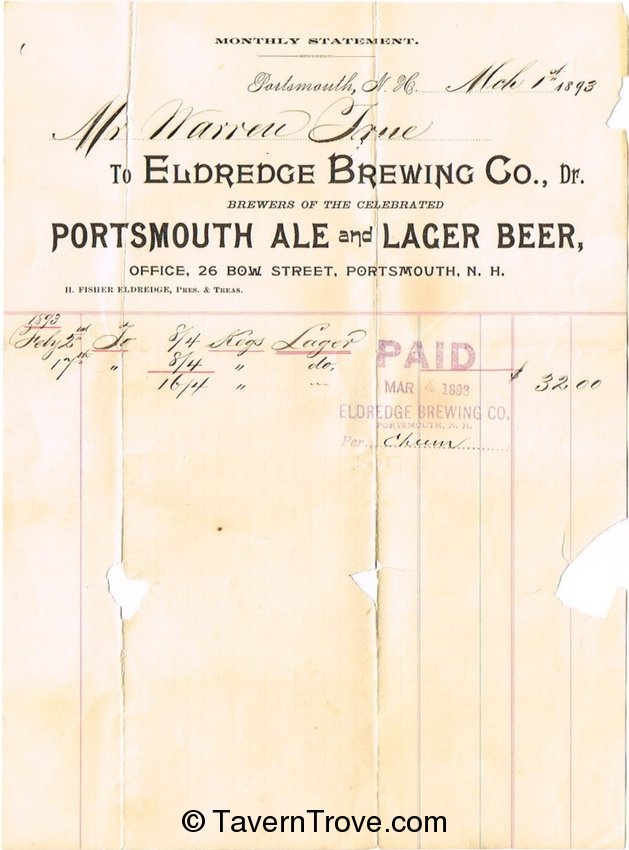 MONTHLY STATEMENT.
Portsmouth, N. H. Mch 1st 1893
Mr Warren True
To ELDREDGE BREWING Co., Dr.
BREWERS OF THE CELEBRATED
PORTSMOUTH ALE and LAGER BEER,
OFFICE, 26 BOW STREET, PORTSMOUTH, N. H.
H. FISHER ELDREDGE, PRES. & TREAS.
1893
Feby 2nd To 8/4 Kegs Lager
17th " 8/4 " do.
16/4 " — $ 32 00
PAID
MAR 4 1893
ELDREDGE BREWING CO.
PORTSMOUTH, N. H.
Per
© TavernTrove.com